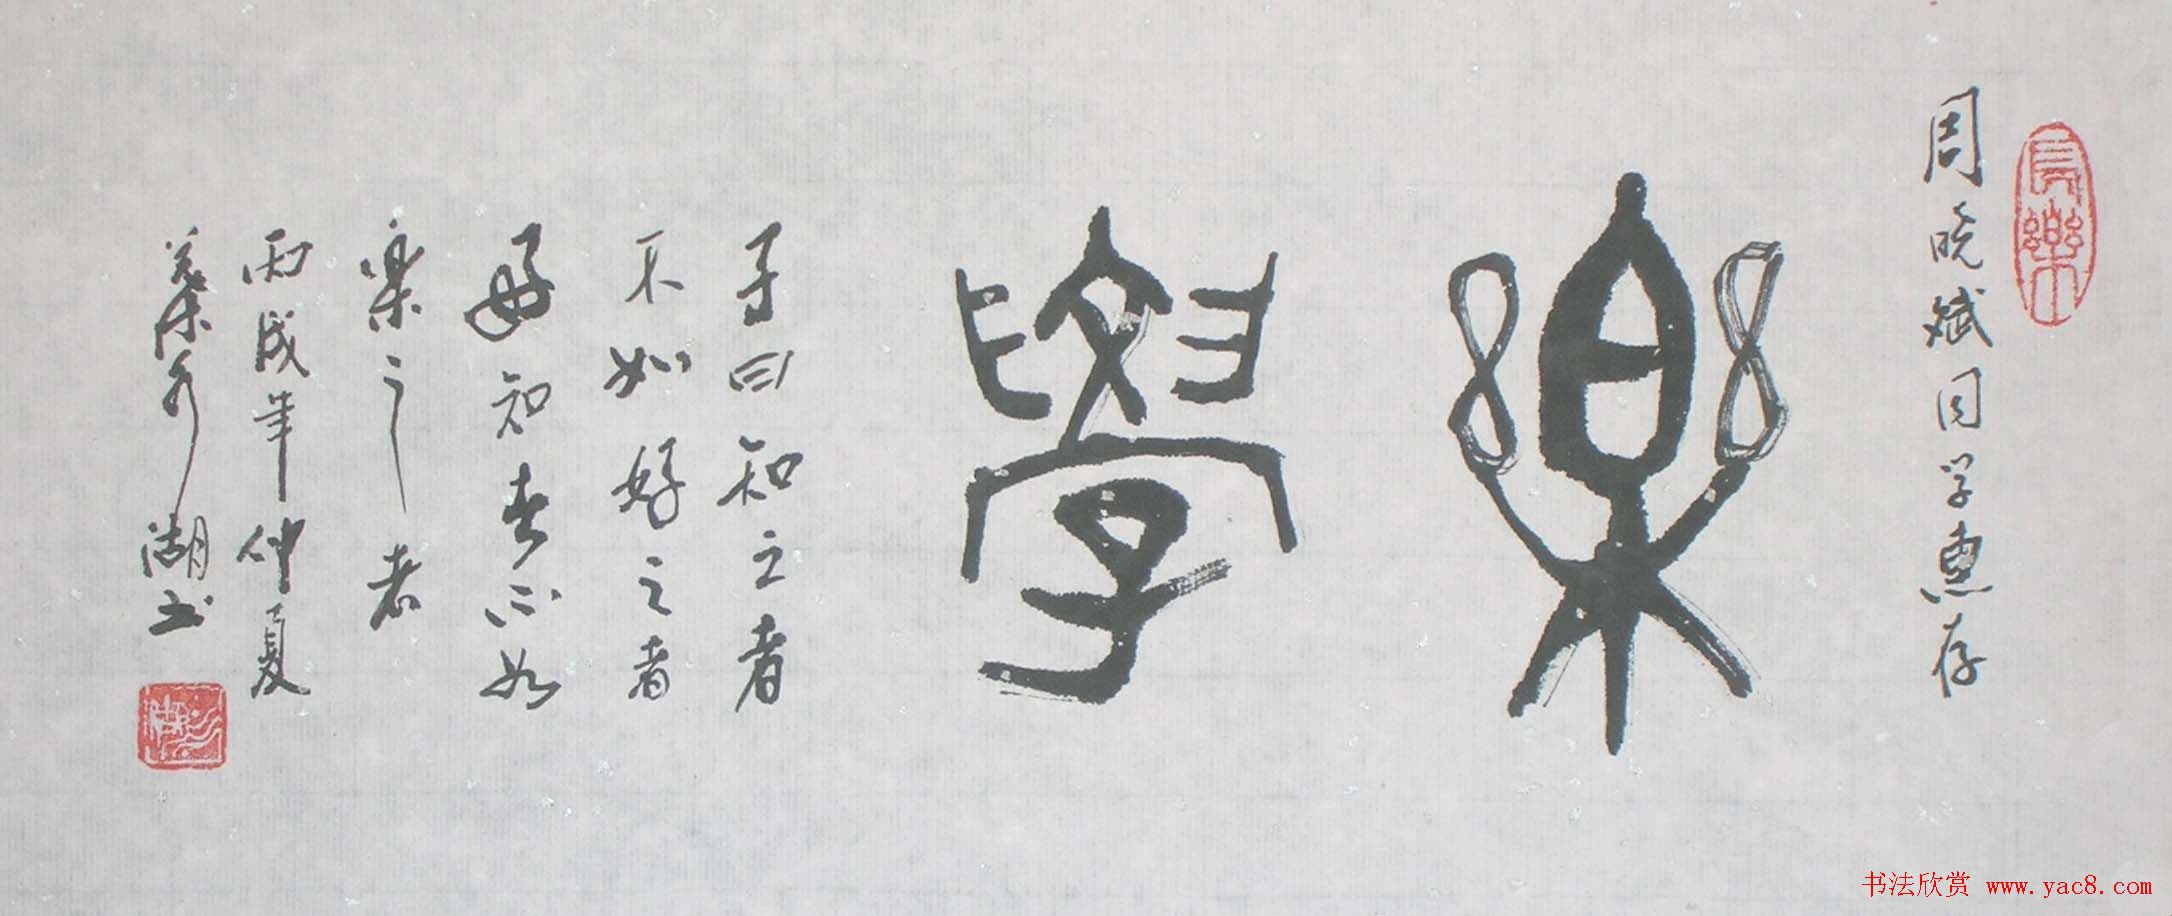 長樂
周晓斌同学惠存
樂學
子曰知之者
不如好之者
好知者不如
楽之者
丙戌年仲夏
湖书
书法欣赏 www.yac8.com